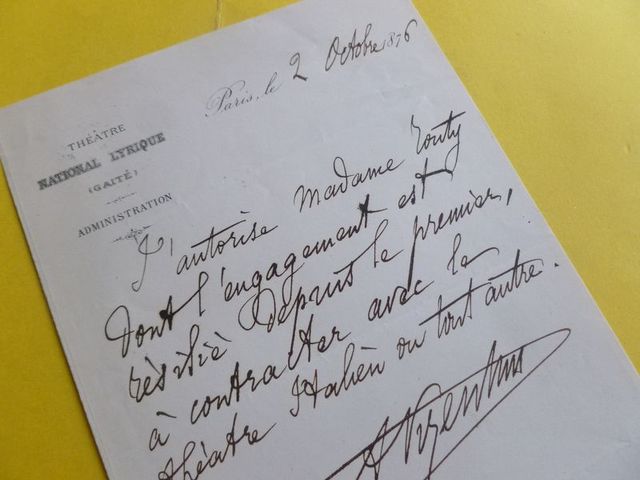 Paris, le 2 Octobre 1876
THÉATRE
NATIONAL LYRIQUE
(GAITÉ)
ADMINISTRATION
J'autorise Madame Zouty
dont l'engagement est
résilié depuis le premier,
à contracter avec le
théatre Italien ou tout autre.